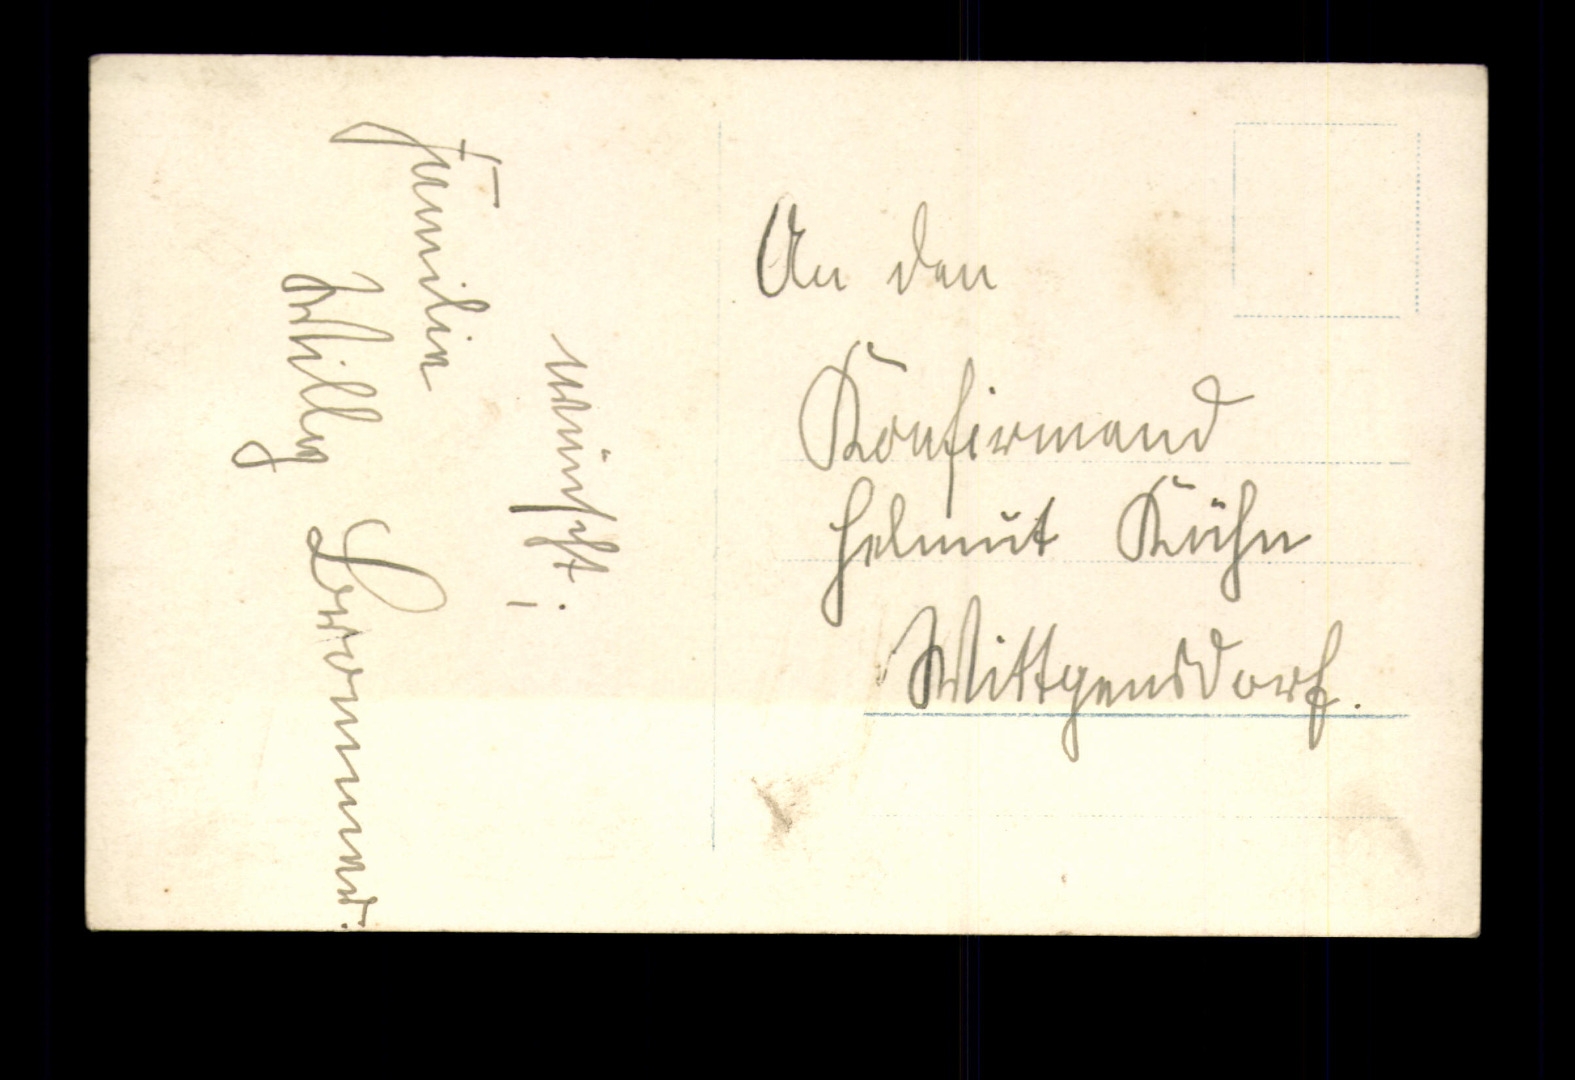 wünscht!
Familie
Willy
An den
Konfirmand
Helmut Kühn
Wittgensdorf.